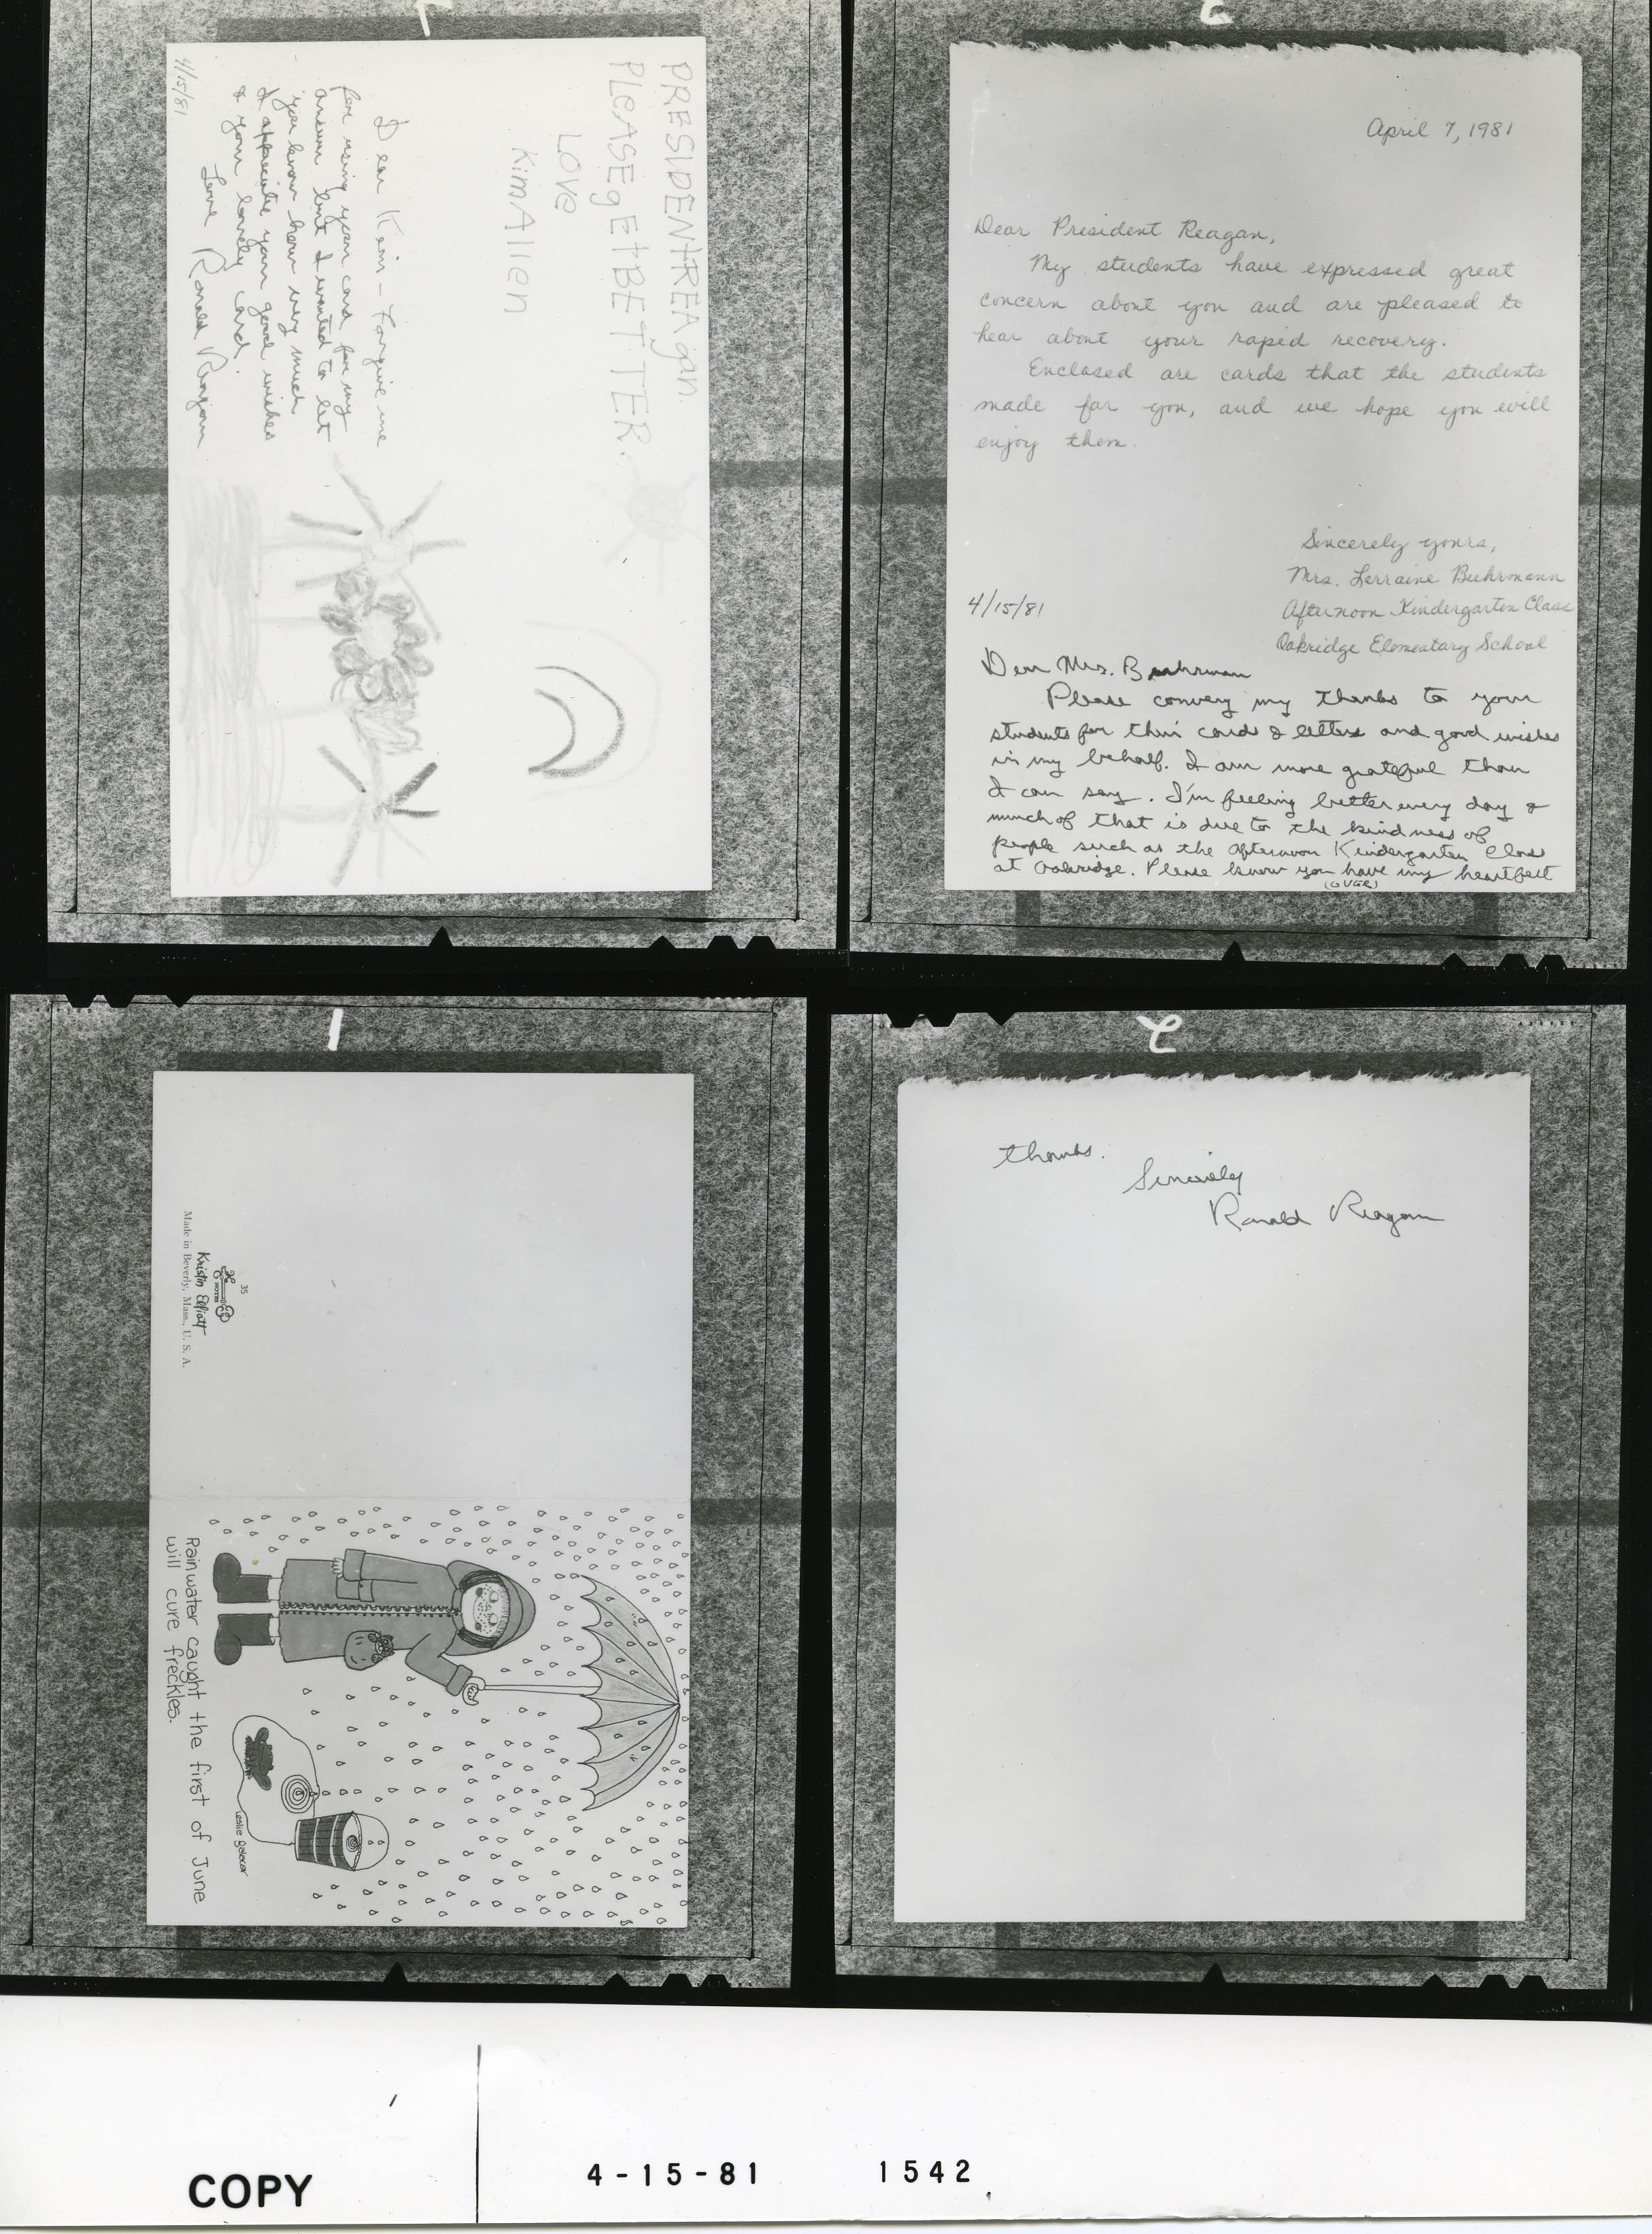 1
PRESIDENTREAgan
PLEASEgEtBETTER.
LOVe
KimAllen
Dear Kim – Forgive me
for using your card for my
answer but I wanted to let
you know how very much
I appreciate your good wishes
& your lovely card.
Love Ronald Reagan
4/15/81
2
April 7, 1981
Dear President Reagan,
My students have expressed great
concern about you and are pleased to
hear about your rapid recovery.
Enclosed are cards that the students
made for you, and we hope you will
enjoy them.
Sincerely yours,
Mrs. Lorraine Buhrmann
Afternoon Kindergarten Class
Oakridge Elementary School
4/15/81
Dear Mrs. Buhrman
Please convey my thanks to your
students for their cards & letters and good wishes
in my behalf. I am more grateful than
I can say. I'm feeling better every day &
much of that is due to the kindness of
people such as the afternoon Kindergarten Class
at Oakridge. Please know you have my heartfelt
(OVER)
1
35
NOTES
Kristin Elliott
Made in Beverly, Mass., U. S. A.
Rainwater caught the first of June
will cure freckles.
2
thanks.
Sincerely
Ronald Reagan
COPY
4-15-81 1542